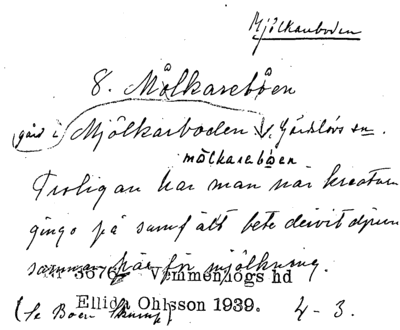 Mjölkareboden
8. Mölkareböen
gård i Mjölkarboden i S. Gärdslövs sn.
mölkareböen
Troligen har man när kreaturen
gingo på samfält bete drivit djuren
samman här för mjölkning.
Nr 3676 Vemmenhögs hd
Ellida Ohlsson 1939.
(Se Boen 4-3.